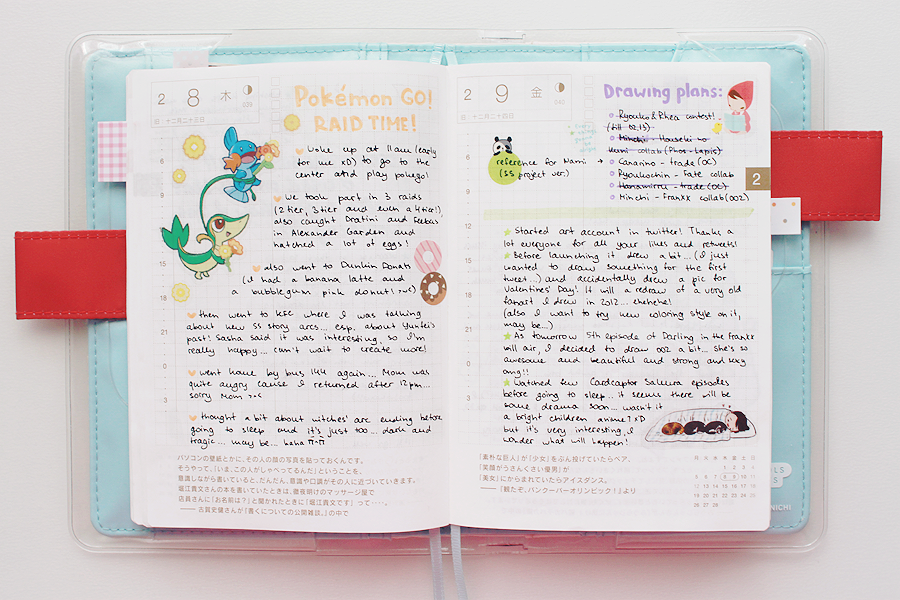 2 8 木
039
旧 十二月二十三日
Pokémon GO!
RAID TIME!
woke up at 11am (early
for me xD) to go to the
center and play pokego!
we took part in 3 raids
(2 tier, 3 tier and even a 4 tier!)
also caught Dratini and Feebas
in Alexander Garden and
hatched a lot of eggs!
also went to Dunkin Donats
(I had a banana latte and
a bubblegum pink donut!
then went to KFC where I was talking
about new SS story arcs... esp. about Yunfei's
past! Sasha said it was interesting, so I'm
really happy... can't wait to create more!
went home by bus 144 again... Mom was
quite angry cause I returned after 12pm...
sorry Mom
thought a bit about witches' arc ending before
going to sleep and it's just too... dark and
tragic... may be... haha
6
9
12
15
18
21
0
3
パソコンの壁紙とかに、その人の顔の写真を貼っておくんです。
そうやって、「いま、この人がしゃべってるんだ」ということを、
意識しながら書いていると、だんだん、意識や口調がその人に近づいていきます。
堀江貴文さんの本を書いていたときは、徹夜明けのマッサージ屋で
店員さんに「お名前は?」と聞かれたときに「堀江貴文です」って‥‥。
── 古賀史健さんが『書くについての公開雑談。』の中で
2 9 金
040
旧 十二月二十四日
Drawing plans:
Ryouko&Rhea contest!
(till 02.15)
Hinchi - Houseki no
Kuni collab (Phos + Lapis)
Canarino - trade (OC)
Ryoukochin - Fate collab
Hanamirru - trade (OC)
Hinchi - FranXX collab (002)
reference for Nami →
(SS
project ver.)
2
Started art account in twitter! Thanks a
lot everyone for all your likes and retweets!
Before launching it drew a bit... (I just
wanted to draw something for the first
tweet...) and accidentally drew a pic for
Valentines' Day! It will a redraw of a very old
fanart I drew in 2012... ehehehe!
(also I want to try new coloring style on it,
may be...)
As tomorrow 5th episode of Darling in the FranXX
will air, I decided to draw 002 a bit... She's so
awesome and beautiful and strong and sexy
omg!!
Watched few Cardcaptor Sakura episodes
before going to sleep... it seems there will be
some drama soon... wasn't it
a bright children anime? xD
but it's very interesting, I
wonder what will happen!
6
9
12
15
18
21
0
3
「素朴な巨人」が「少女」をぶん投げていたらペア、
「笑顔がうさんくさい優男」が
「美女」にからまれていたらアイスダンス。
──『観たぞ、バンクーバーオリンピック!』より
日 月 火 水 木 金 土
1 2 3
4 5 6 7 8 9 10
11 12 13 14 15 16 17
18 19 20 21 22 23 24
25 26 27 28
NICHI